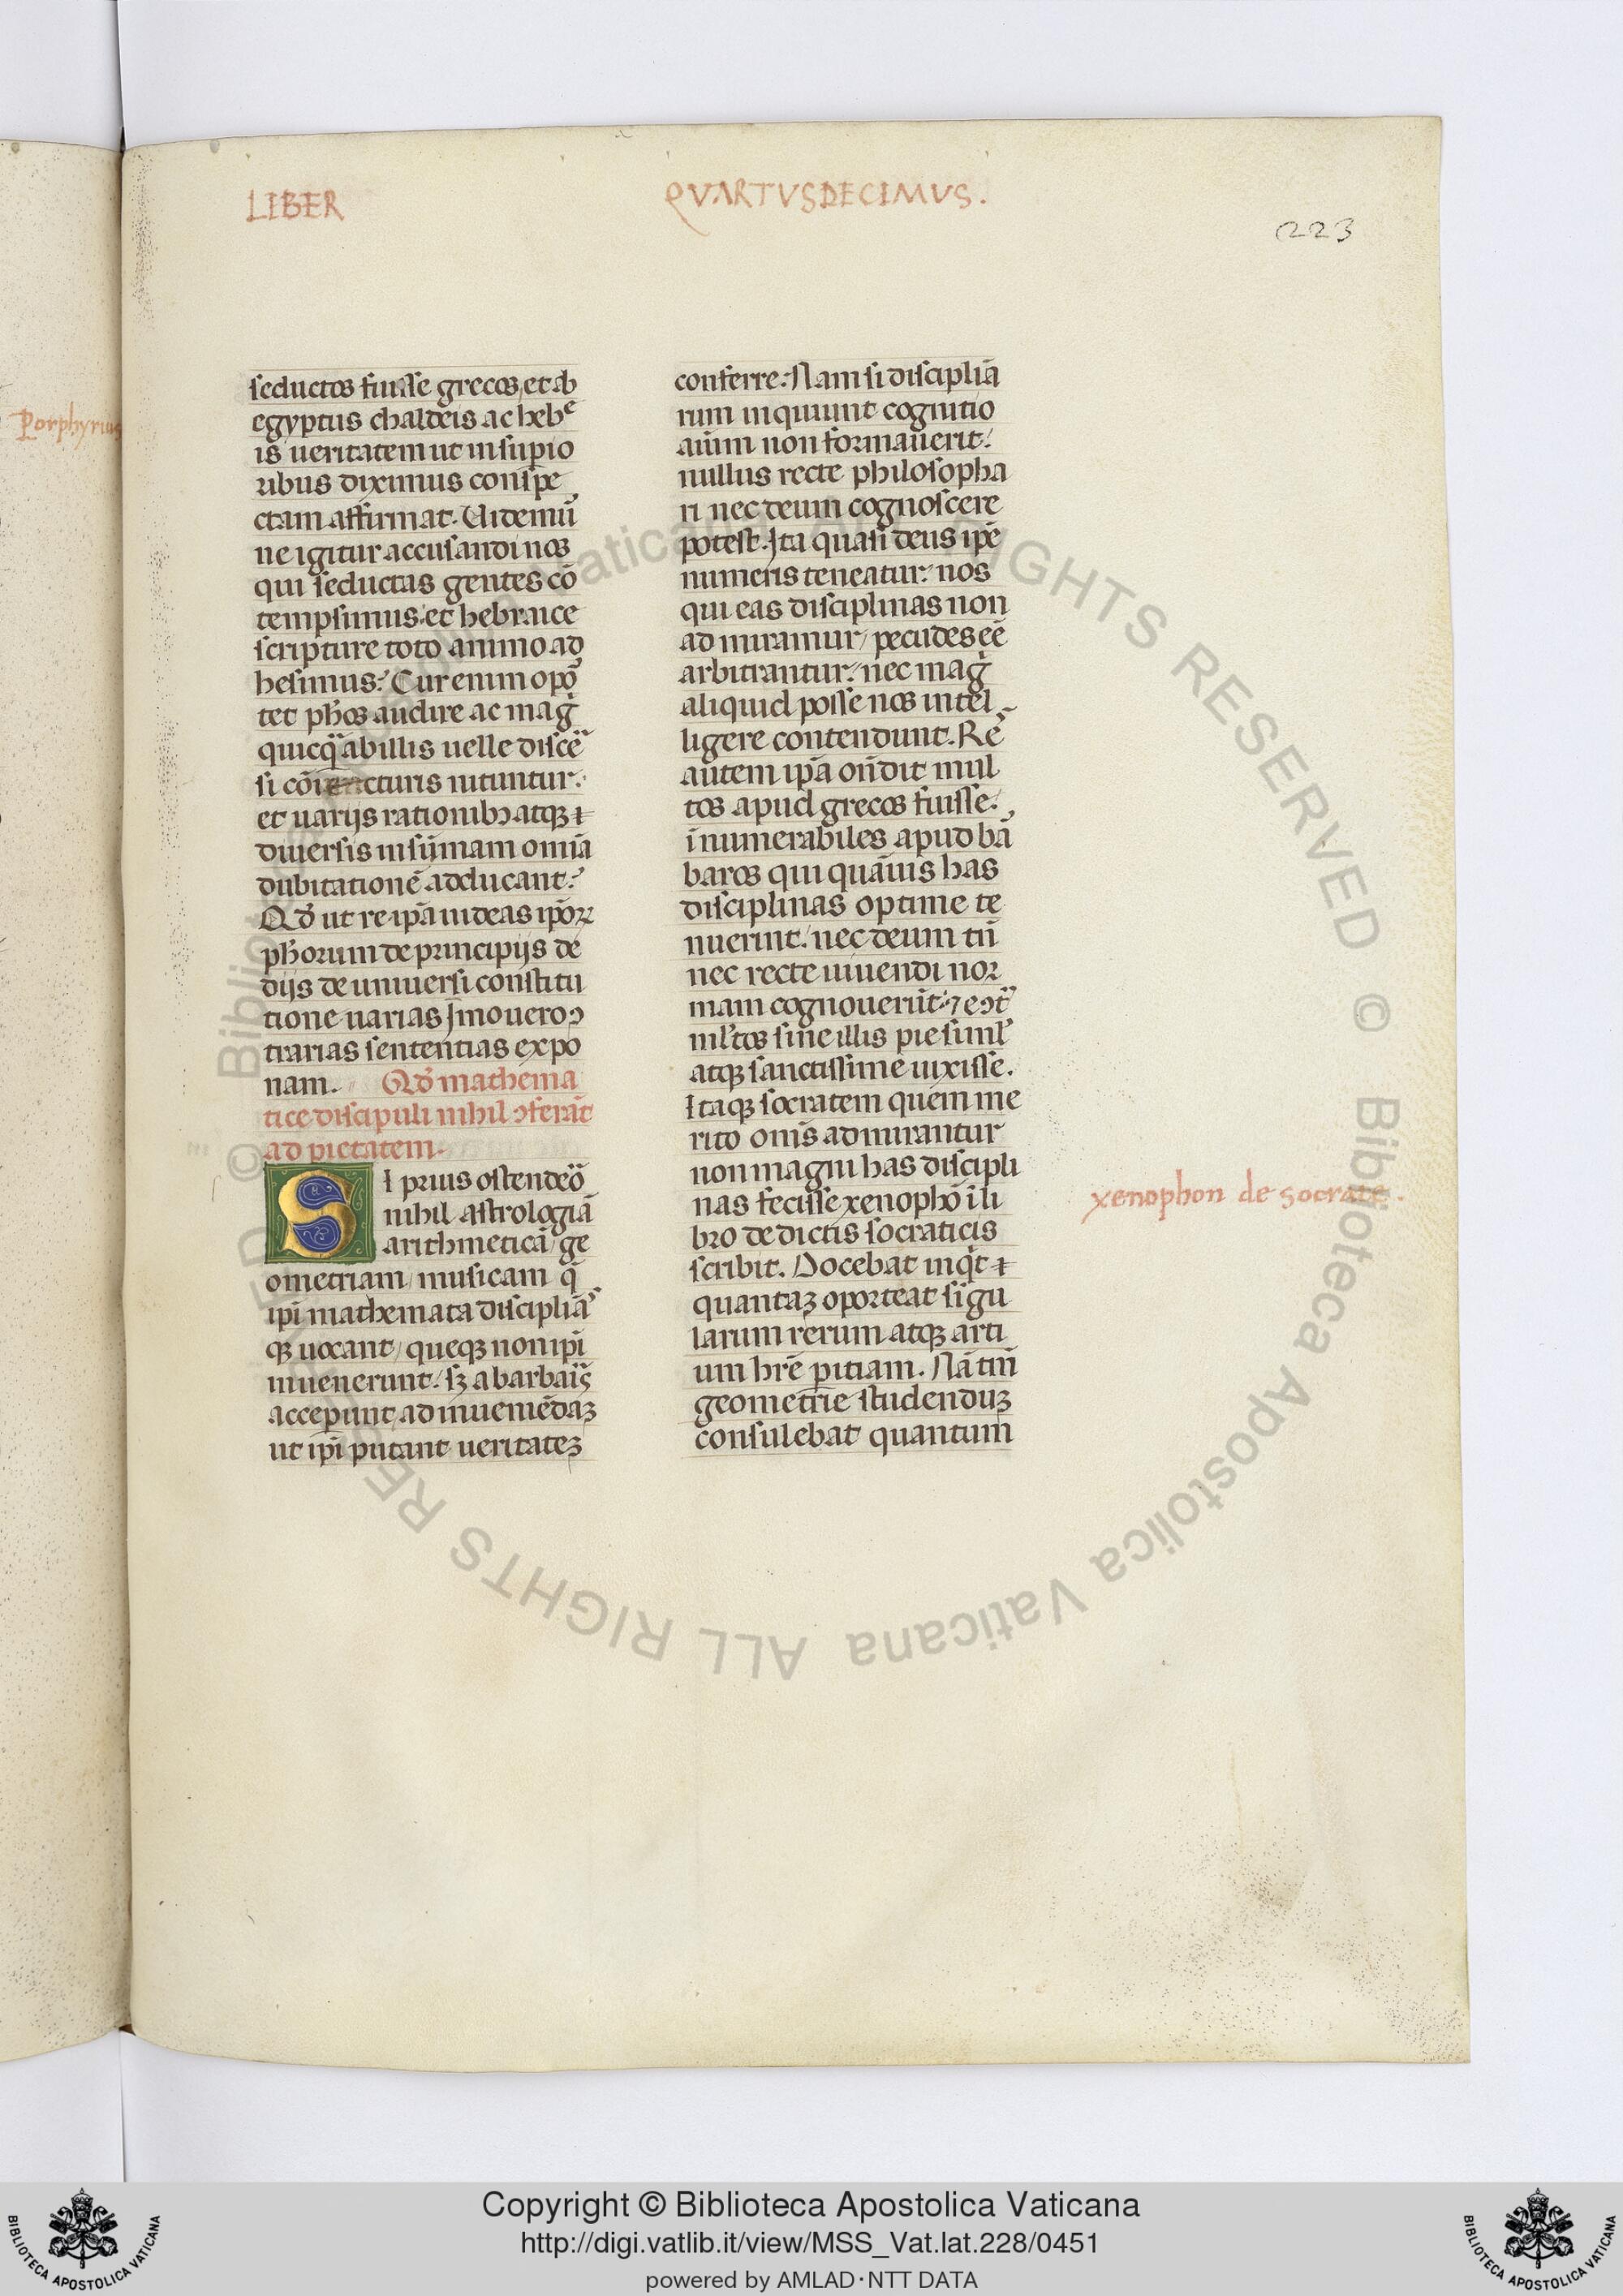 LIBER
QVARTVSDECIMUS.
223
Porphyrius
seductos fuisse grecos, et ab
egyptus chaldeis ac hebᵉ
is ueritatem ut in sup̄io
ribus diximus conspe
ctam affirmat. Uidemū
ne igitur accusandi nos
qui seductas gentes cō
tempsimus: et hebraice
scripture toto animo ad
hesimus? Cur enim opō
tet ph̄os audire ac mag̍
quicq̄ ab illis uelle discē
si cōiecturis nituntur:
et uarijs rationibꝫ atqꝫ ⁊
diuersis in sūmam omīa
dubitationē adducant?
Qd̄ ut re ip̄a uideas ip̄oꝝ
ph̄orum de principijs de
dijs de uniuersi constitu
tione uarias Jmouero ↄ
trarias sententias expo
nam. Qd̄ mathema
tice discipuli nihil ↄferāt
ad pietatem.
SI prius ostendeō
nihil astrologiā
arithmeticā, ge
ometriam, musicam q̄
ip̄i mathemata discipliā
qꝫ uocant, queqꝫ non ip̄i
inuenerunt: sꝫ a barbaīs
acceperunt, ad inueniēdaꝫ
ut ip̄i putant ueritateꝫ
conferre: Nam si discipliā
rum inquiunt cognitio
aīum non formauerit:
nullus recte philosopha
ri nec deum cognoscere
potest. Ita quasi deus ip̄e
numeris teneatur: nos
qui eas disciplinas non
ad miramur, pecudes eē
arbitrantur: nec mag̍
aliquid posse nos intel
ligere contendunt. Rē
autem ip̄a on̄dit mul
tos apud grecos fuisse:
īnumerabiles apud bā
baros qui quāuis has
disciplinas optime te
nuerint: nec deum tn̄
nec recte uiuendi nor
mam cognouerūt: ⁊ eↄt̄
ml̄tos sine illis pie siml̄
atqꝫ sanctissime uixisse.
Itaqꝫ socratem quem me
rito om̄s admirantur
non magni has discipli
nas fecisse xenophō ī li
bro de dictis socraticis
scribit. Docebat inq̄t ⁊
quantaꝫ oporteat sīgu
larum rerum atqꝫ arti
um hr̄e p̄itiam. Nā tm̄
geometrie studenduꝫ
consulebat quantum
xenophon de socrate.
© Biblioteca Apostolica Vaticana ALL RIGHTS RESERVED © Biblioteca Apostolica Vaticana ALL RIGHTS RESERVED
Copyright © Biblioteca Apostolica Vaticana
http://digi.vatlib.it/view/MSS_Vat.lat.228/0451
powered by AMLAD·NTT DATA
BIBLIOTECA APOSTOLICA VATICANA
BIBLIOTECA APOSTOLICA VATICANA